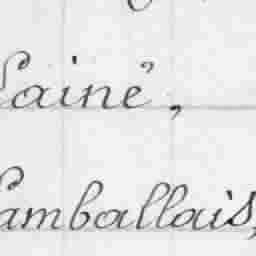 Lainé",
Lamballais,